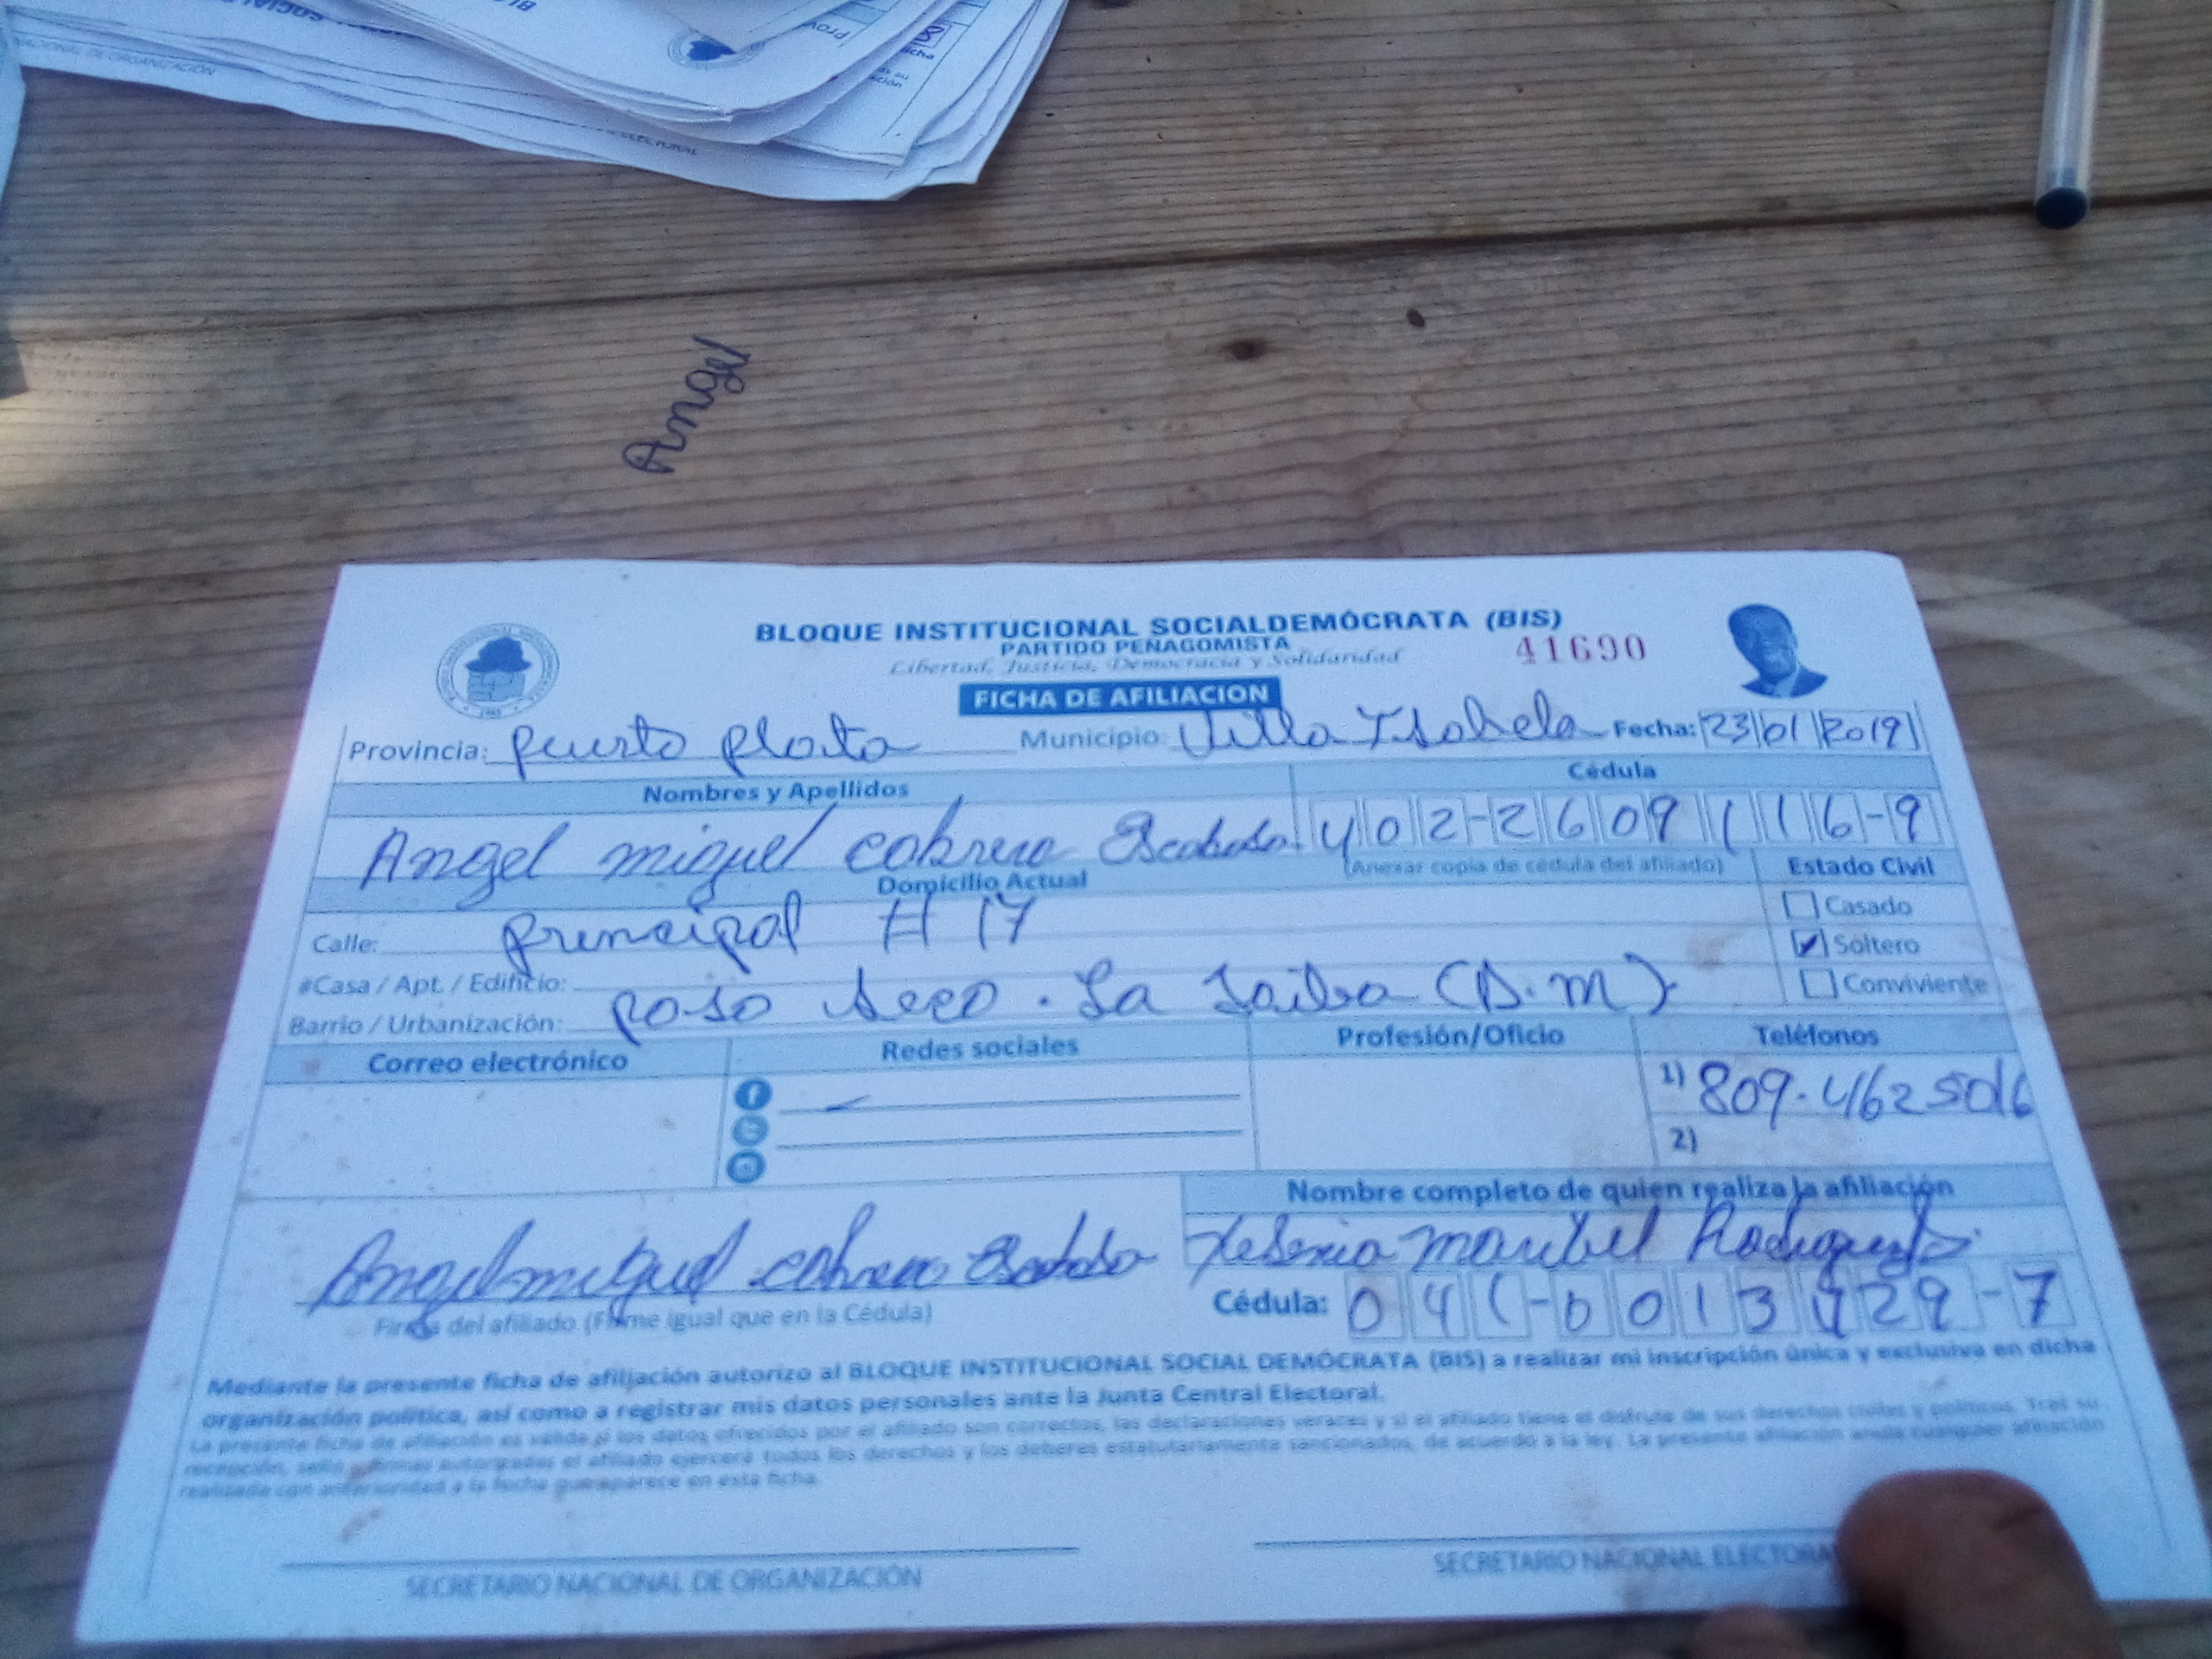 NACIONAL DE ORGANIZACIÓN
Angel
BLOQUE INSTITUCIONAL SOCIALDEMÓCRATA (BIS)
PARTIDO PEÑAGOMISTA
41690
Libertad, Justicia, Democracia y Solidaridad
FICHA DE AFILIACION
Provincia: puerto plata Municipio: Villa Isabela Fecha: 23 01 2019
Nombres y Apellidos Cédula
Angel miguel cabrera 402-2609116-9
(Anexar copia de cédula del afiliado) Estado Civil
Domicilio Actual
Casado
Calle: principal # 17
Soltero
#Casa / Apt. / Edificio:
Conviviente
Barrio / Urbanización: poso seco . La Jaiba (D.M)
Correo electrónico Redes sociales Profesión/Oficio Teléfonos
1) 809-462 5016
2)
Nombre completo de quien realiza la afiliación
Angel miguel cabrera maribel
Firma del afiliado (Firme igual que en la Cédula)
Cédula: 041-0013729-7
Mediante la presente ficha de afiliación autorizo al BLOQUE INSTITUCIONAL SOCIAL DEMÓCRATA (BIS) a realizar mi inscripción única y exclusiva en dicha
organización política, así como a registrar mis datos personales ante la Junta Central Electoral.
La presente ficha de afiliación es valida si los datos ofrecidos por el afiliado son correctos, las declaraciones veraces y si el afiliado tiene el disfrute de sus derechos civiles y políticos. Tras su
recepción, sello y firmas autorizadas el afiliado ejercerá todos los derechos y los deberes estatutariamente sancionados, de acuerdo a la ley. La presente afiliación anula cualquier afiliación
realizada con anterioridad a la fecha que aparece en esta ficha.
SECRETARIO NACIONAL DE ORGANIZACIÓN
SECRETARIO NACIONAL ELECTORA